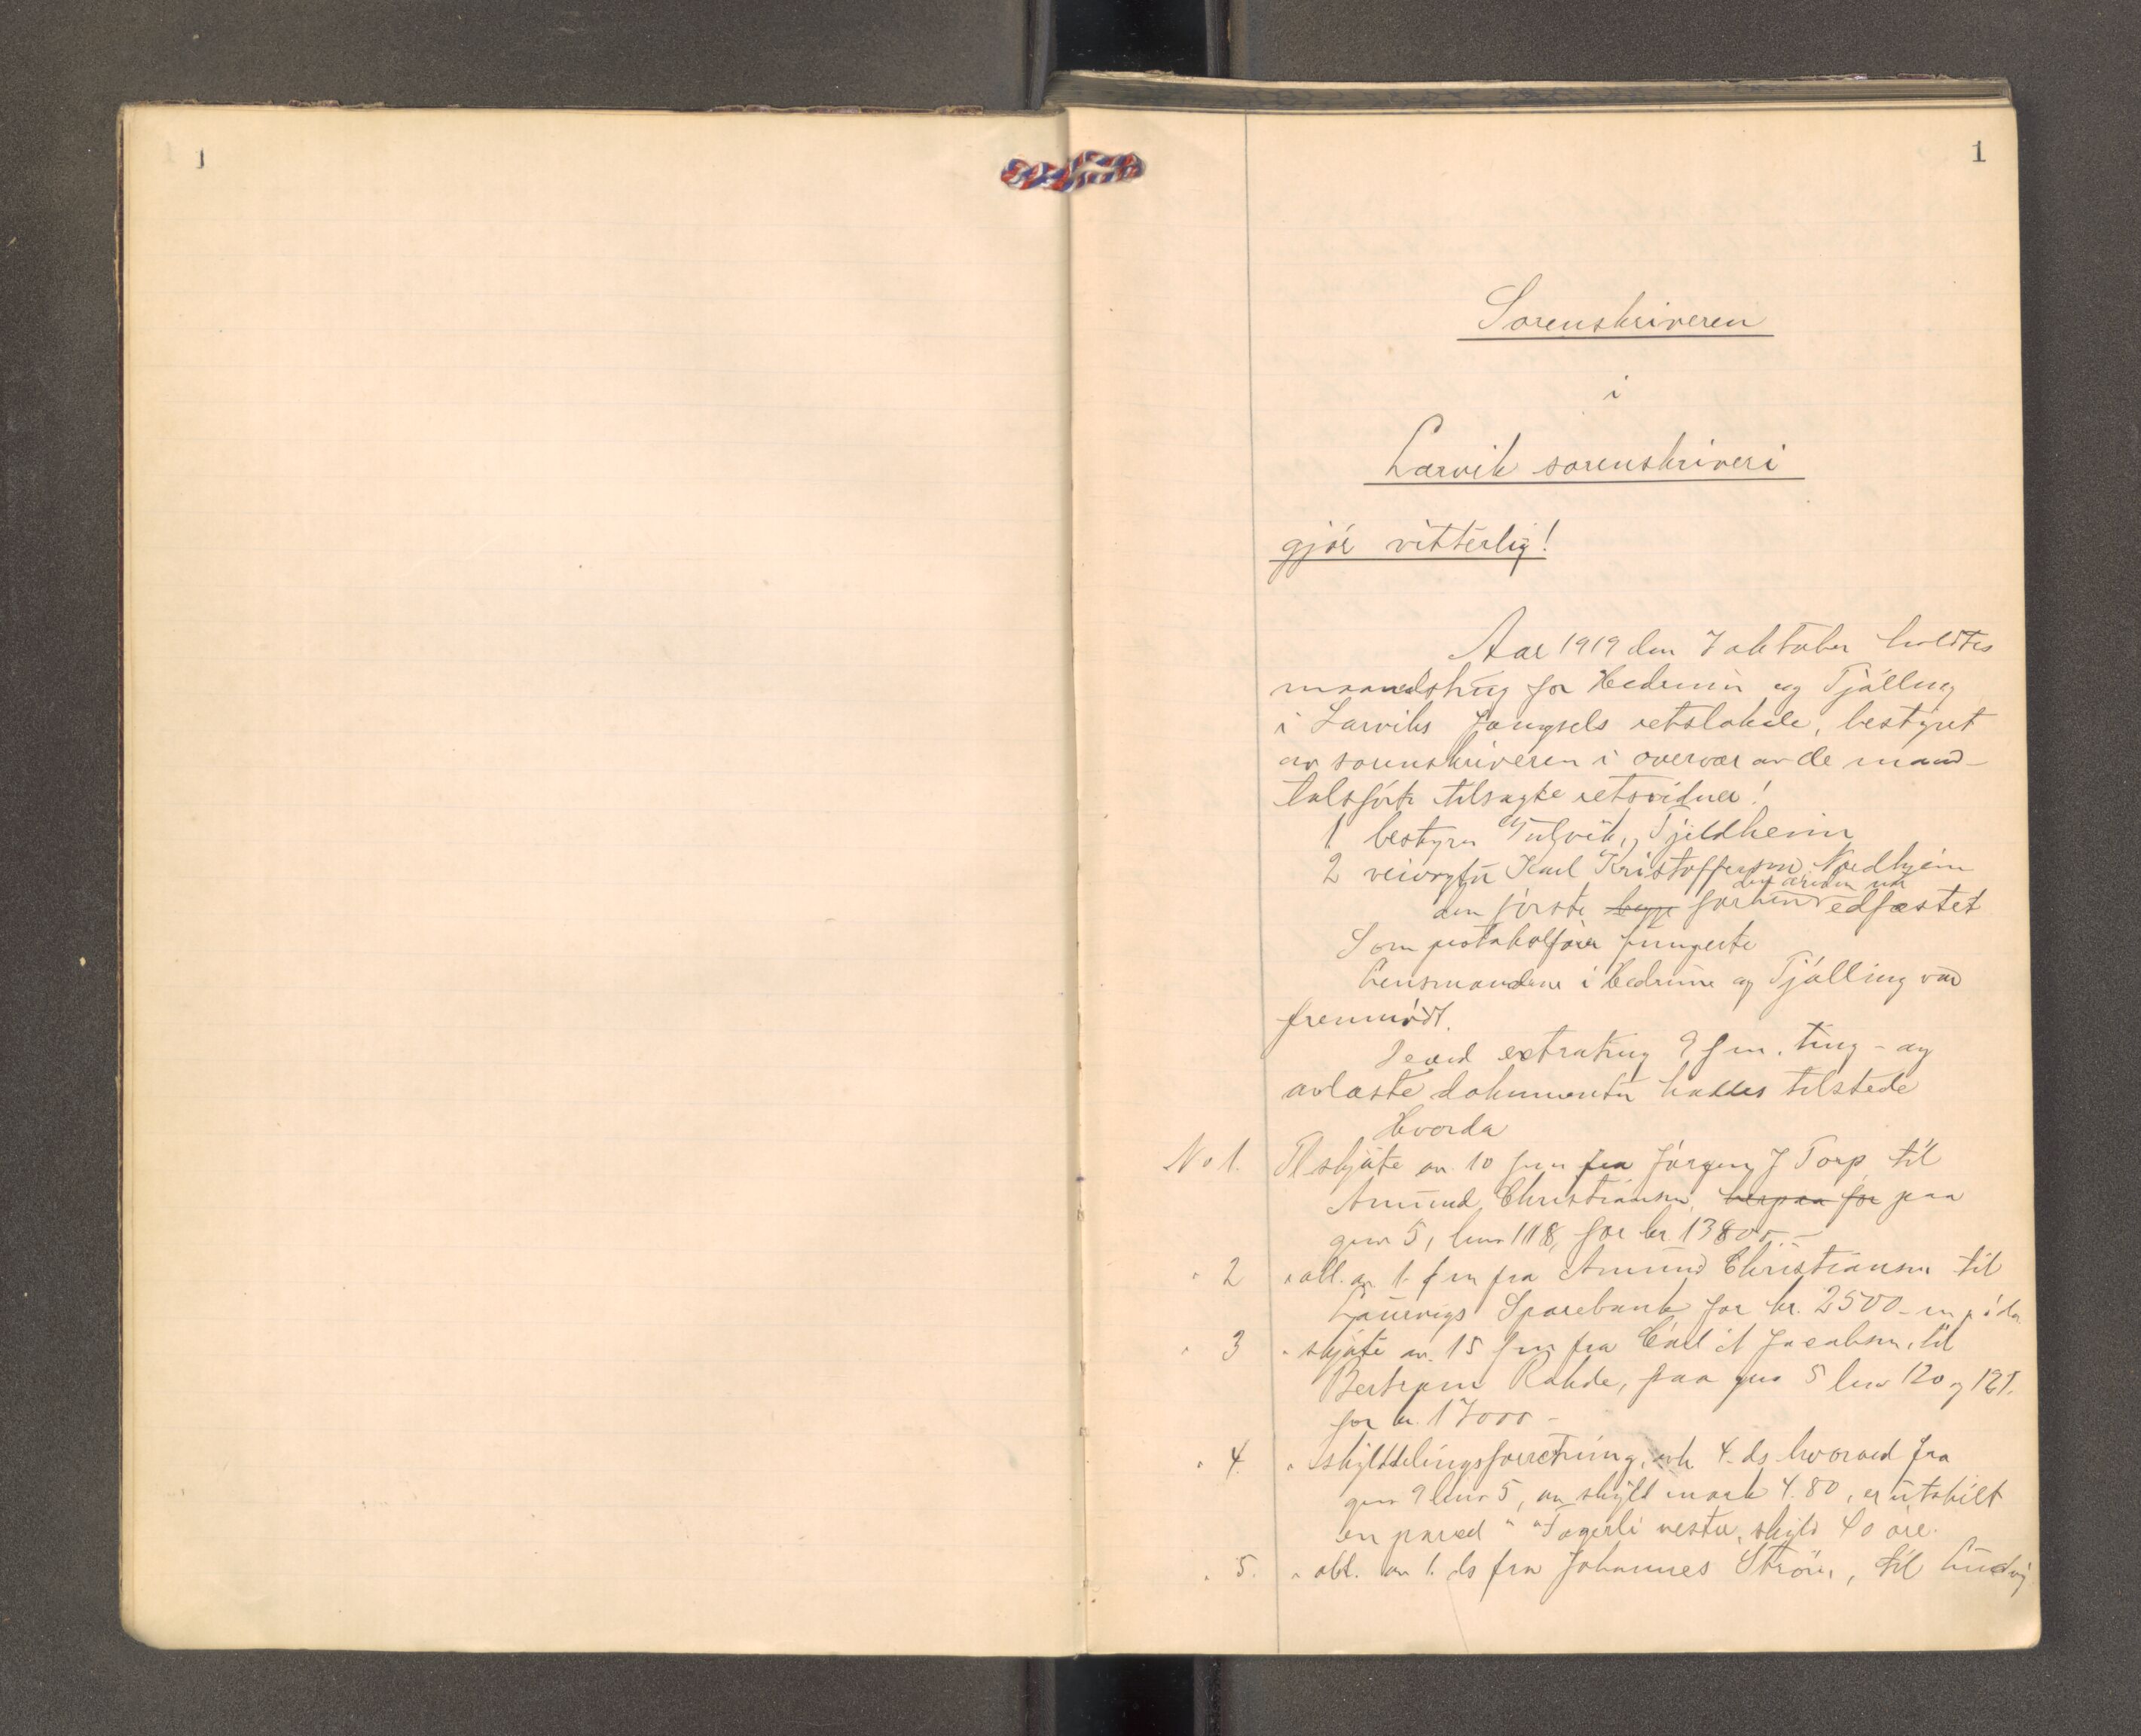 1
1
Sorenskriveren
i
Larvik sorenskriveri
gjør vitterlig!
Aar 1919 den 7 oktober holdtes
maanedsting for Hedrum og Tjølling
i Larviks fængsels retslokale, bestyret
av sorenskriveren i overvær av de mand-
talsførte tilsagte retsvidner!
1 bestyrer Tjeldheim
2 veivogter Karl Kristoffersen, Nordheim
den første begge forhen den anden nu edfæstet
Som protokolfører fungerte
Lensmandene i Hedrum og Tjølling var
fremmødt.
extrating 9 f m. ting- og
avlæste dokumenter haddes tilstede
Hvorda
No 1. Tl skjøte av 10 f m fra Jørgen J Torp til
Amund Christiansen, for paa
gno 5, bno 118, for kr 13800.-
" 2 " obl. av 1. f m fra Amund Christiansen til
Laurvigs Sparebank for kr. 2500 - m p i do
" 3 " skjøte av 15 f m fra Carl A Jacobsen, til
Bertram Rakde, paa gno 5 bno 120 og 121.
for kr. 17000 -
" 4. " skylddelingsforretning, avh 4. ds hvorved fra
gno 9 bno 5, av skyld mark 4.80, er utskilt
en parsel " "Fagerli vestre, skyld 40 øre.
" 5. " obl. av 1. ds fra Johannes Strøm, til Ludvig